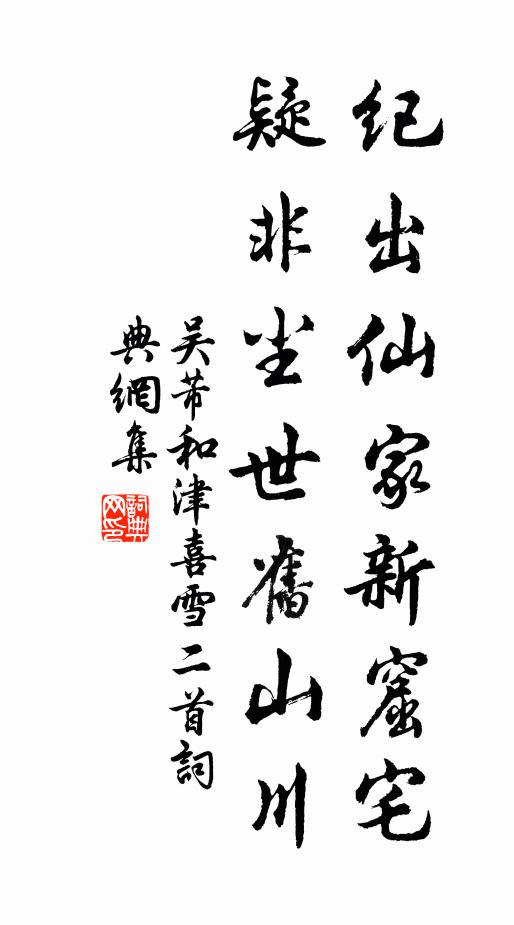 纪出仙家新窟宅
疑非尘世舊山川
吴芾和津喜雪二首詞
典網集
詞典
网印